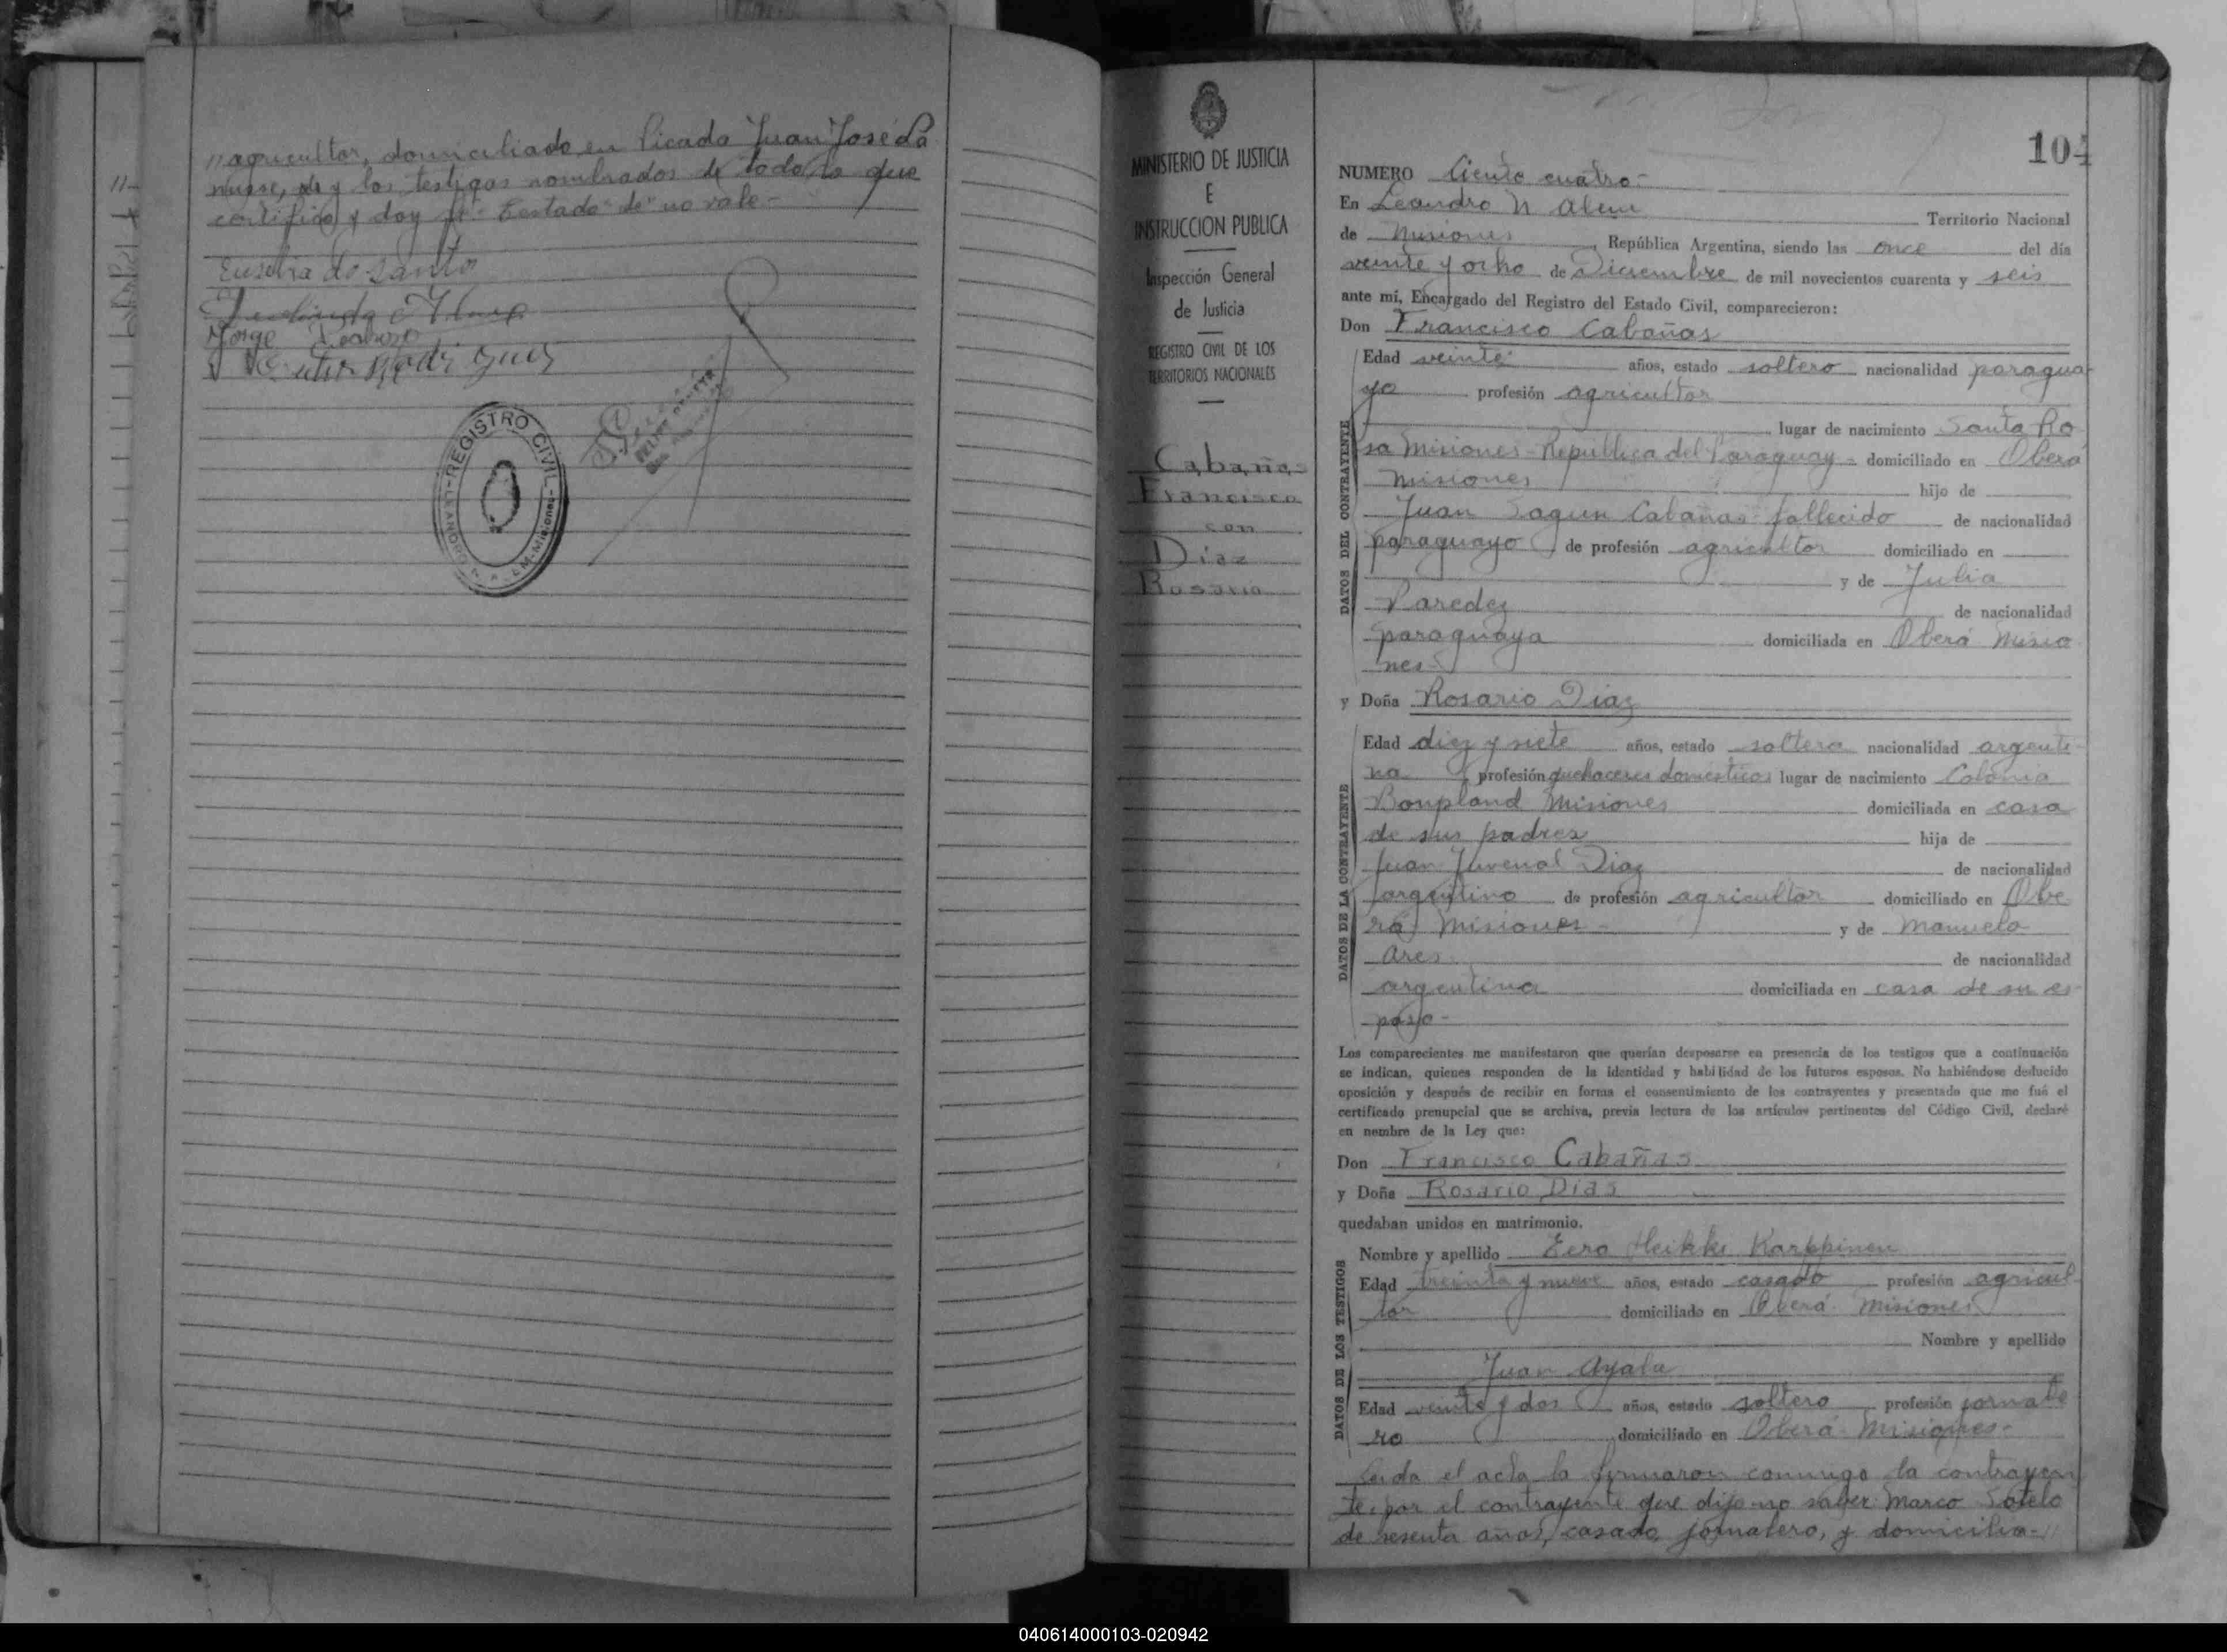 //agricultor, domiciliado en Picada Juan José La
nusse, de y los testigos nombrados de todo lo que
certifico y doy fé - Testado "de" no vale -
Jorge
REGISTRO CIVIL
MINISTERIO DE JUSTICIA
E
INSTRUCCION PUBLICA
Inspección General
de Justicia
REGISTRO CIVIL DE LOS
TERRITORIOS NACIONALES
Cabañas
Francisco
con
Díaz
Rosario
104
NUMERO Ciento cuatro.-
En Leandro N Alem Territorio Nacional
de Misiones, República Argentina, siendo las once del día
veinte y ocho de Diciembre de mil novecientos cuarenta y seis
ante mí, Encargado del Registro del Estado Civil, comparecieron:
Don Francisco Cabañas
DATOS DEL CONTRAYENTE
Edad veinte años, estado soltero nacionalidad paragua-
yo profesión agricultor
lugar de nacimiento Santa Ro
sa Misiones - República del Paraguay - domiciliado en Oberá
Misiones hijo de
Juan Sagun Cabañas - fallecido de nacionalidad
paraguayo de profesión agricultor domiciliado en
y de Julia
Paredez de nacionalidad
paraguaya domiciliada en Oberá Misio
nes -
y Doña Rosario Diaz
DATOS DE LA CONTRAYENTE
Edad diez y siete años, estado soltera nacionalidad argenti-
na profesión quehaceres domésticos lugar de nacimiento Colonia
Bonpland Misiones domiciliada en casa
de sus padres hija de
Juan Juvenal Diaz de nacionalidad
argentino de profesión agricultor domiciliado en Obe
rá Misiones - y de Manuela
Ares de nacionalidad
argentina domiciliada en casa de su es-
poso -
Los comparecientes me manifestaron que querían desposarse en presencia de los testigos que a continuación
se indican, quienes responden de la identidad y habilidad de los futuros esposos. No habiéndose deducido
oposición y después de recibir en forma el consentimiento de los contrayentes y presentado que me fué el
certificado prenupcial que se archiva, previa lectura de los artículos pertinentes del Código Civil, declaré
en nombre de la Ley que:
Don Francisco Cabañas
y Doña Rosario Dias
quedaban unidos en matrimonio.
DATOS DE LOS TESTIGOS
Nombre y apellido Eero Heikki Karppinen
Edad treinta y nueve años, estado casado profesión agricul-
tor domiciliado en Oberá - Misiones
Nombre y apellido
Juan Ayala
Edad veinte y dos años, estado soltero profesión jornale
ro domiciliado en Oberá - Misiones -
Leida el acta la firmaron conmigo la contrayen
te, por el contrayente que dijo no saber Marco Sotelo
de sesenta años, casado, jornalero, y domicilia-//
040614000103-020942